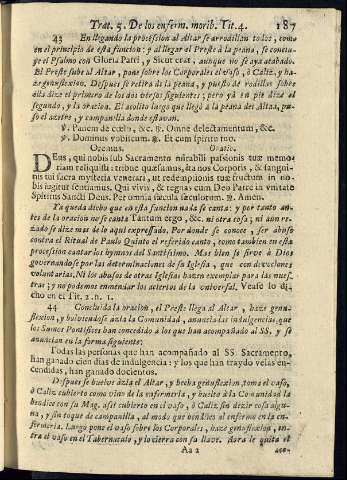 Trat. 5. De los enferm. morib. Tit. 4. 187
43 En llegando la procession al Altar se arrodillan todos, como
en el principio de esta funcion: y al llegar el Preste à la peana, se conclu-
ye el Psalmo con Gloria Patri, y Sicut erat, aunque no se aya acabado.
El Preste sube al Altar, pone sobre los Corporales el vaso, ò Caliz, y ha-
ze genuflexion. Despues se retira de la peana, y puesto de rodillas sobre
ella dize el primero de los dos versos siguientes: pero yà en pie dize el
segundo, y la oracion. El acolito luego que llegò à la peana del Altar, pu-
so el acetre, y campanilla donde estavan.
℣. Panem de cœlo, &c. ℟. Omne delectamentum, &c.
℣. Dominus vobiscum. ℟. Et cum spiritu tuo.
Oremus. Oratio.
DEus, qui nobis sub Sacramento mirabili passionis tuæ memo-
riam reliquisti: tribue quæsumus, ita nos Corporis, & sangui-
nis tui sacra mysteria venerari, ut redemptionis tuæ fructum in no-
bis iugiter sentiamus. Qui vivis, & regnas cum Deo Patre in vnitate
Spiritus Sancti Deus. Per omnia sæcula sæculorum. ℟. Amen.
Ya queda dicho que en esta funcion nada se canta: y por tanto an-
tes de la oracion no se canta Tantum ergo, &c. ni otra cosa; ni aun re-
zado se dize mas de lo aqui expressado. Por donde se conoce, ser abuso
contra el Ritual de Paulo Quinto el referido canto, como tambien en esta
procession cantar los hymnos del Santissimo. Mas bien se sirve à Dios
governandose por las determinaciones de su Iglesia, que con devociones
voluntarias. Ni los abusos de otras Iglesias hazen exemplar para las nues-
tras; y no podemos enmendar los aciertos de la universal. Vease lo di-
cho en el Tit. 2. n. 1.
44 Concluida la oracion, el Preste llega al Altar, haze genu-
flexion, y bolviendose àzia la Comunidad, anuncia las indulgencias que
los Sumos Pontifices han concedido à los que han acompañado al SS. y se
anuncian en la forma siguiente:
Todas las personas que han acompañado al SS. Sacramento,
han ganado cien dias de indulgencia: y los que han traydo velas en-
cendidas, han ganado docientos.
Despues se buelve àzia el Altar, y hecha genuflexion, toma el vaso,
ò Caliz cubierto como vino de la enfermeria, y buelto à la Comunidad la
bendice con su Mag. assi cubierto en el vaso, ò Caliz sin dezir cosa algu-
na, y sin toque de campanilla, al modo que bendixo al enfermo en la en-
fermeria. Luego pone el vaso sobre los Corporales, haze genuflexion, en-
tra el vaso en el Tabernaculo, y lo cierra con su llave. Aora le quita el
Aa 2